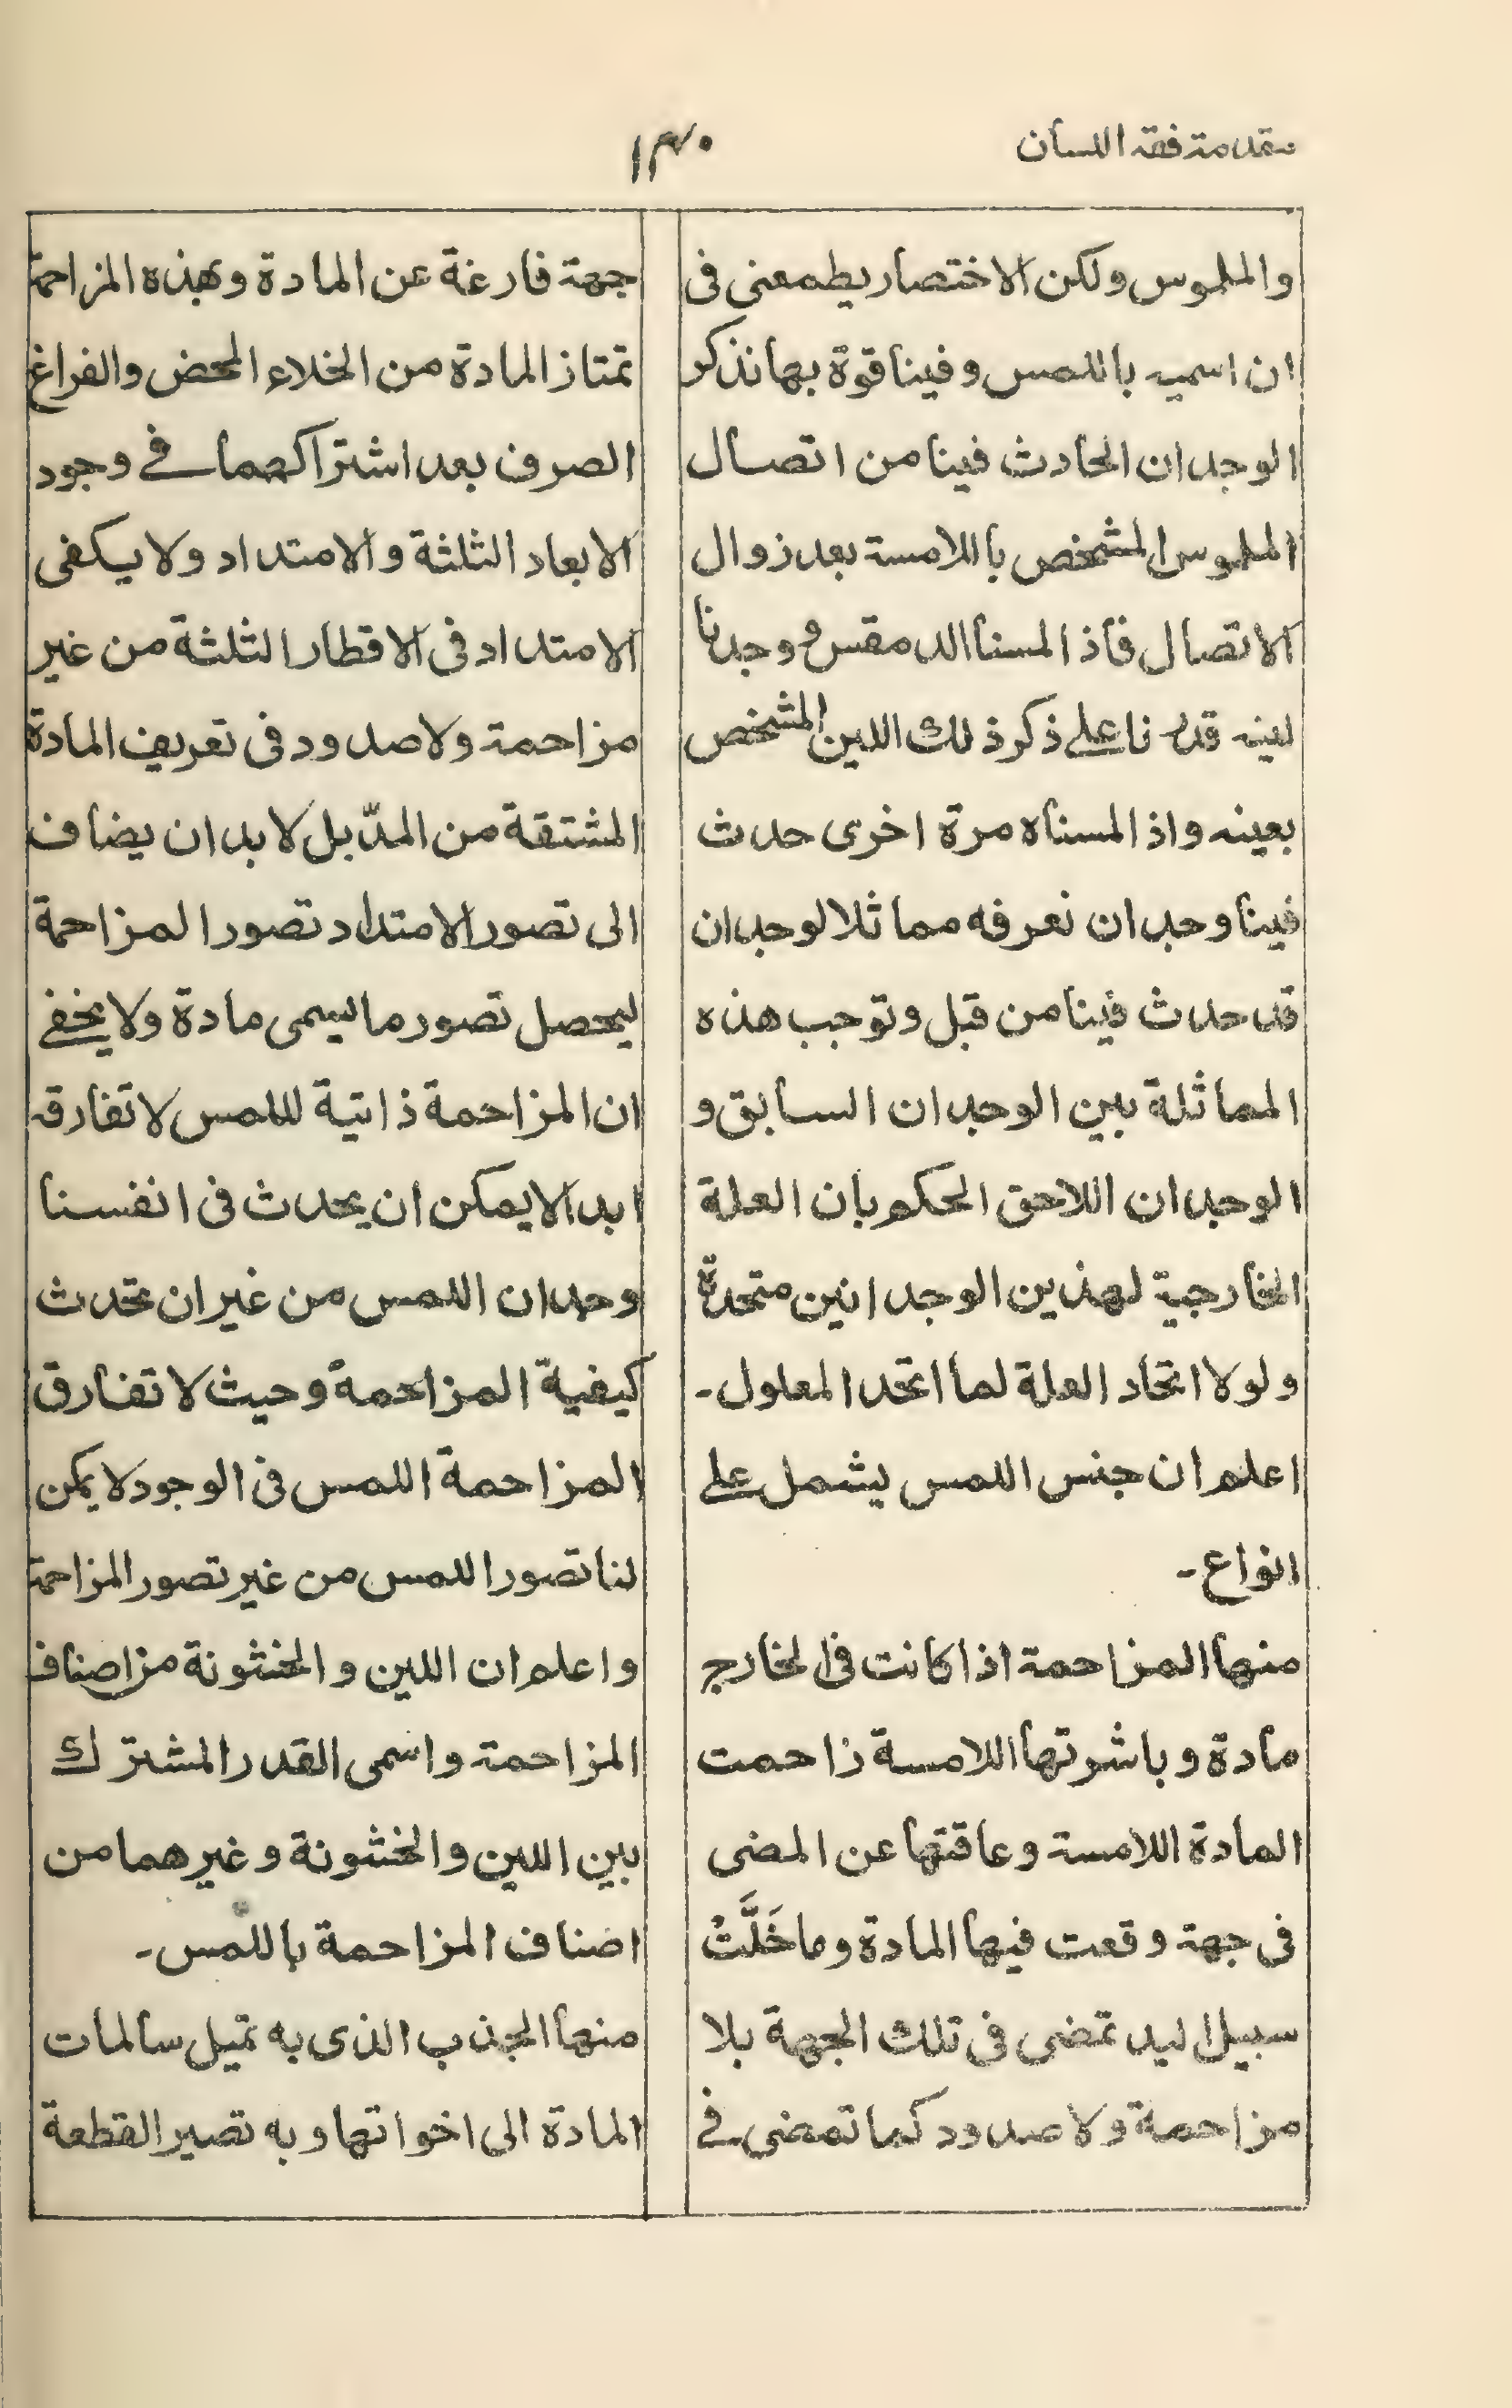 مقدمة فقه اللسان
١٣٠
والملموس ولكن الاختصار يطمعنى فى
ان اسميه باللمس وفينا قوة بها نذكر
الوجدان الحادث فينا من اتصال
الملموس المشخص باللامسة بعد زوال
الاتصال فاذا لمسنا الدمقس ووجدنا
لينه قدرنا على ذكر ذلك اللين المشخص
بعينه واذا لمسناه مرة اخرى حدث
فينا وجدان نعرفه مماثلا لوجدان
قد حدث فينا من قبل وتوجب هذه
المماثلة بين الوجدان السابق و
الوجدان اللاحق الحكم بان العلة
الخارجية لهذين الوجدانين متحدة
ولولا اتحاد العلة لما اتحد المعلول-
اعلم ان جنس اللمس يشمل على
انواع-
منها المزاحمة اذا كانت فى الخارج
مادة وباشرتها اللامسة زاحمت
المادة اللامسة وعاقتها عن المضى
فى جهة وقعت فيها المادة وما خَلَّتْ
سبيل اليد تمضى فى تلك الجهة بلا
مزاحمة ولا صدود كما تمضى فى
جهة فارغة عن المادة وهذه المزاحمة
تمتاز المادة من الخلاء المحض والفراغ
الصرف بعد اشتراكهما فى وجود
الابعاد الثلثة والامتداد ولا يكفى
الامتداد فى الاقطار الثلثة من غير
مزاحمة ولا صدود فى تعريف المادة
المشتقة من المدّ بل لا بد ان يضاف
الى تصور الامتداد تصور المزاحمة
ليحصل تصور ما يسمى مادة ولا يخفى
ان المزاحمة ذاتية لللمس لا تفارقه
ابدا لا يمكن ان يحدث فى انفسنا
وجدان اللمس من غير ان تحدث
كيفية المزاحمة وحيث لا تفارق
المزاحمة اللمس فى الوجود لا يمكن
لنا تصور اللمس من غير تصور المزاحمة
واعلم ان اللين والخشونة من اصناف
المزاحمة واسمى القدر المشترك
بين اللين والخشونة وغيرهما من
اصناف المزاحمة باللمس-
منها الجذب الذى به تميل سالمات
المادة الى اخواتها وبه تصير القطعة